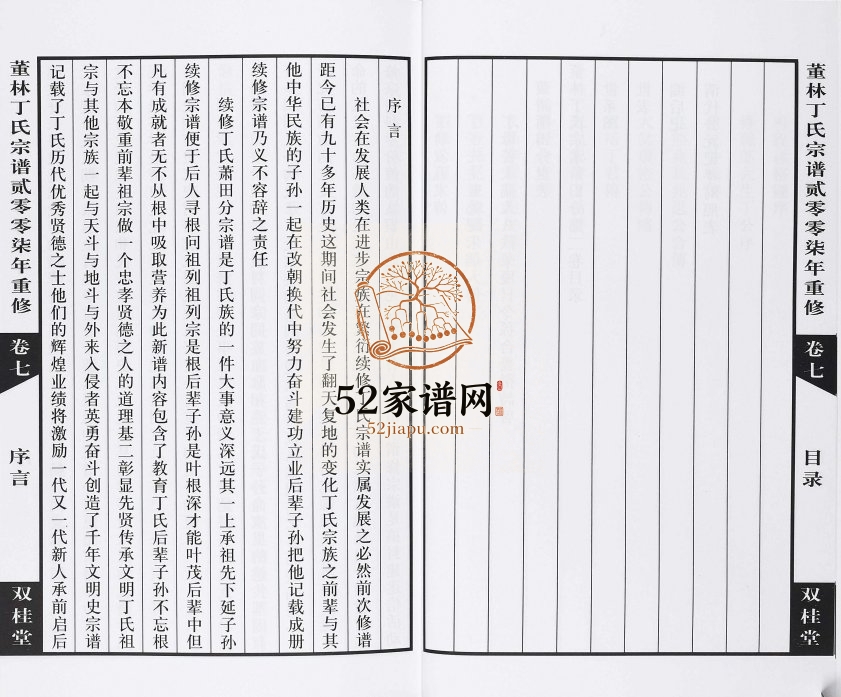 董林丁氏宗谱贰零零柒年重修
卷七
目录
双桂堂
序言
社会在发展人类在进步宗族在繁衍续修丁氏宗谱实属发展之必然前次修谱
距今已有九十多年历史这期间社会发生了翻天复地的变化丁氏宗族之前辈与其
他中华民族的子孙一起在改朝换代中努力奋斗建功立业后辈子孙把他记载成册
续修宗谱乃义不容辞之责任
续修丁氏萧田分宗谱是丁氏族的一件大事意义深远其一上承祖先下延子孙
续修宗谱便于后人寻根问祖列祖列宗是根后辈子孙是叶根深才能叶茂后辈中但
凡有成就者无不从根中吸取营养为此新谱内容包含了教育丁氏后辈子孙不忘根
不忘本敬重前辈祖宗做一个忠孝贤德之人的道理基二彰显先贤传承文明丁氏祖
宗与其他宗族一起与天斗与地斗与外来入侵者英勇奋斗创造了千年文明史宗谱
记载了丁氏历代优秀贤德之士他们的辉煌业绩将激励一代又一代新人承前启后
董林丁氏宗谱贰零零柒年重修
卷七
序言
双桂堂
52家谱网
52jiapu.com